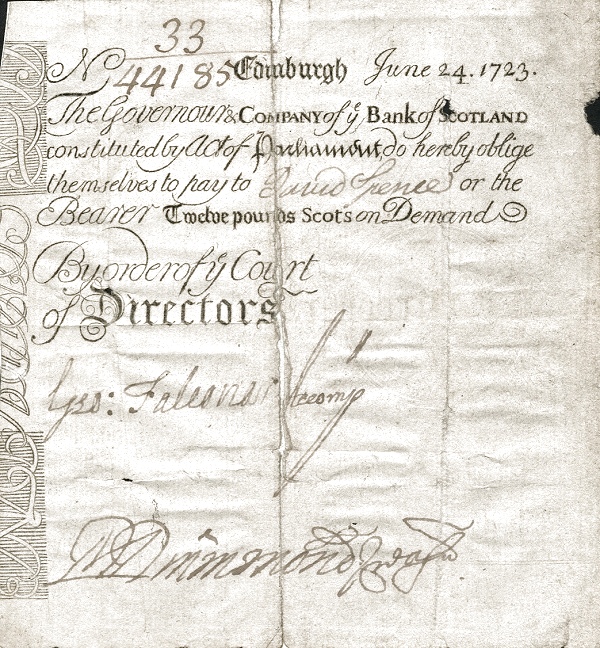 33
No 44185 Edinburgh June 24. 1723.
The Governour & Company of ye Bank of Scotland
constituted by Act of Parliament, do hereby oblige
themselves to pay to David Spence or the
Bearer Twelve pounds Scots on Demand
By order of ye Court
of Directors
Geo: Falconar Accomp
Drummond